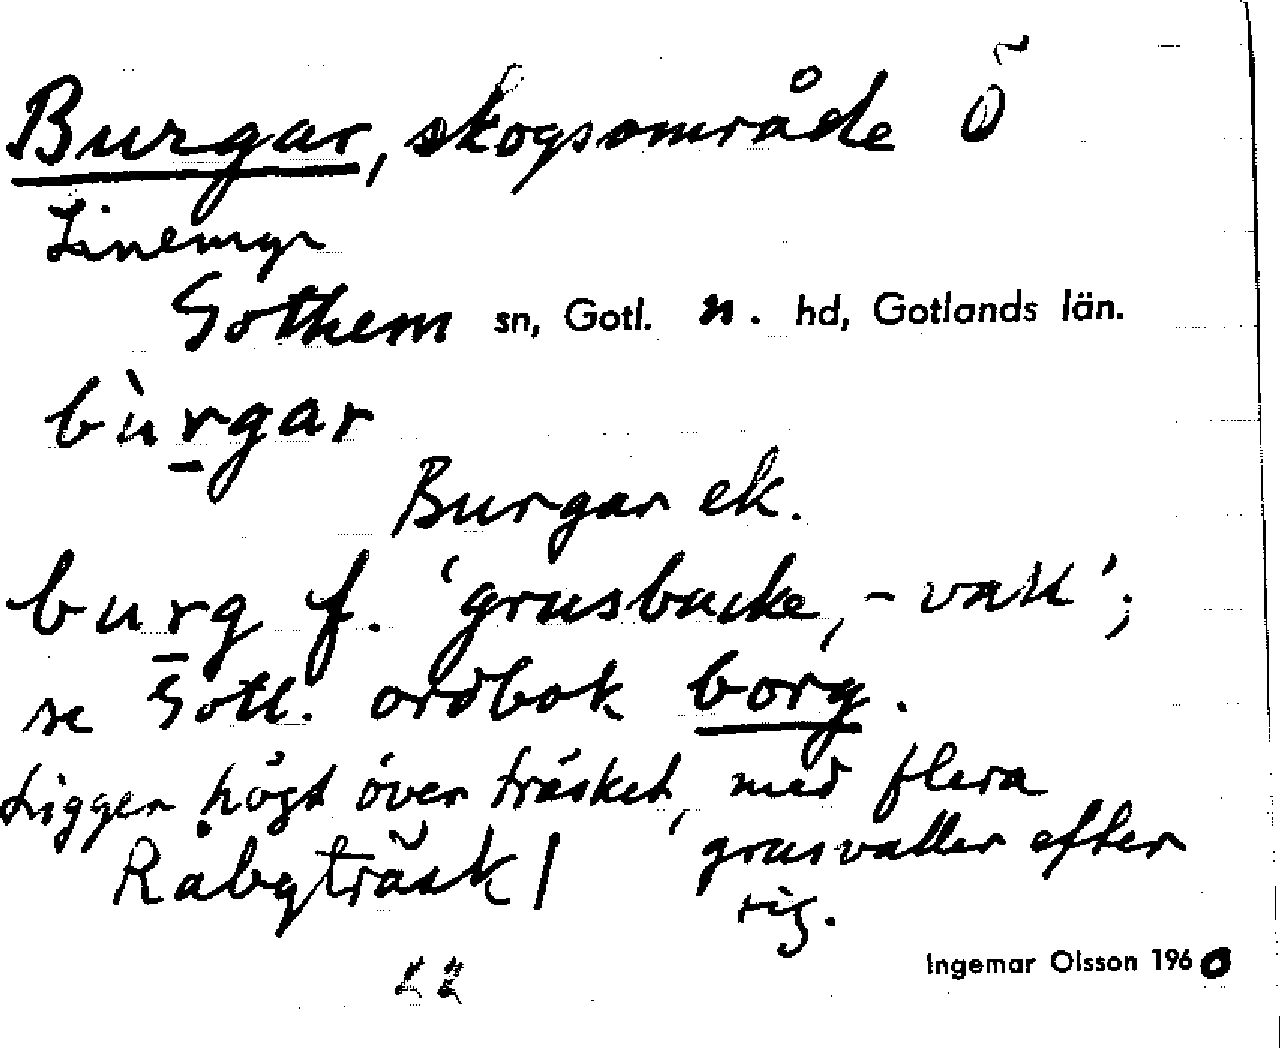 Burgar, skogsområde Ö
Linemyr
Gothem sn, Gotl. n. hd, Gotlands län.
bùrgar
Burgar ek.
burg f. 'grusbacke, -vall';
se Gotl. ordbok borg.
Ligger högt över träsket, med flera
grusvallar efter
sig.
Råbyträsk
Ingemar Olsson 1960